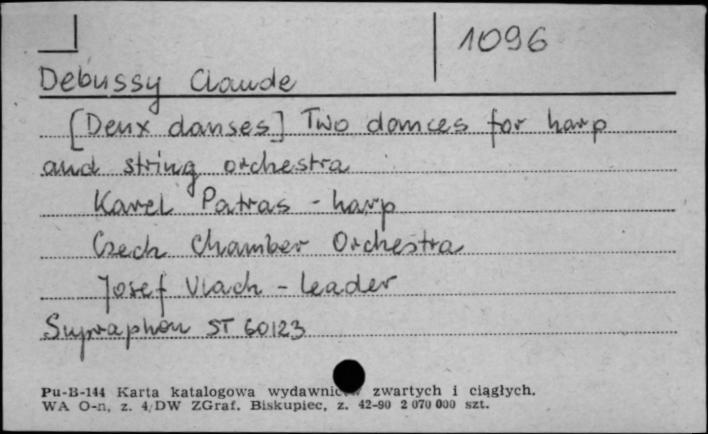 1096
Debussy Claude
[Deux danses] Two dances for harp
and string orchestra
Karel Patras - harp
Czech Chamber Orchestra
Josef Vlach - leader
Supraphon ST 60123
Pu-B-144 Karta katalogowa wydawnictw zwartych i ciągłych.
WA O-n, z. 4/DW ZGraf. Biskupiec, z. 42-90 2 070 000 szt.